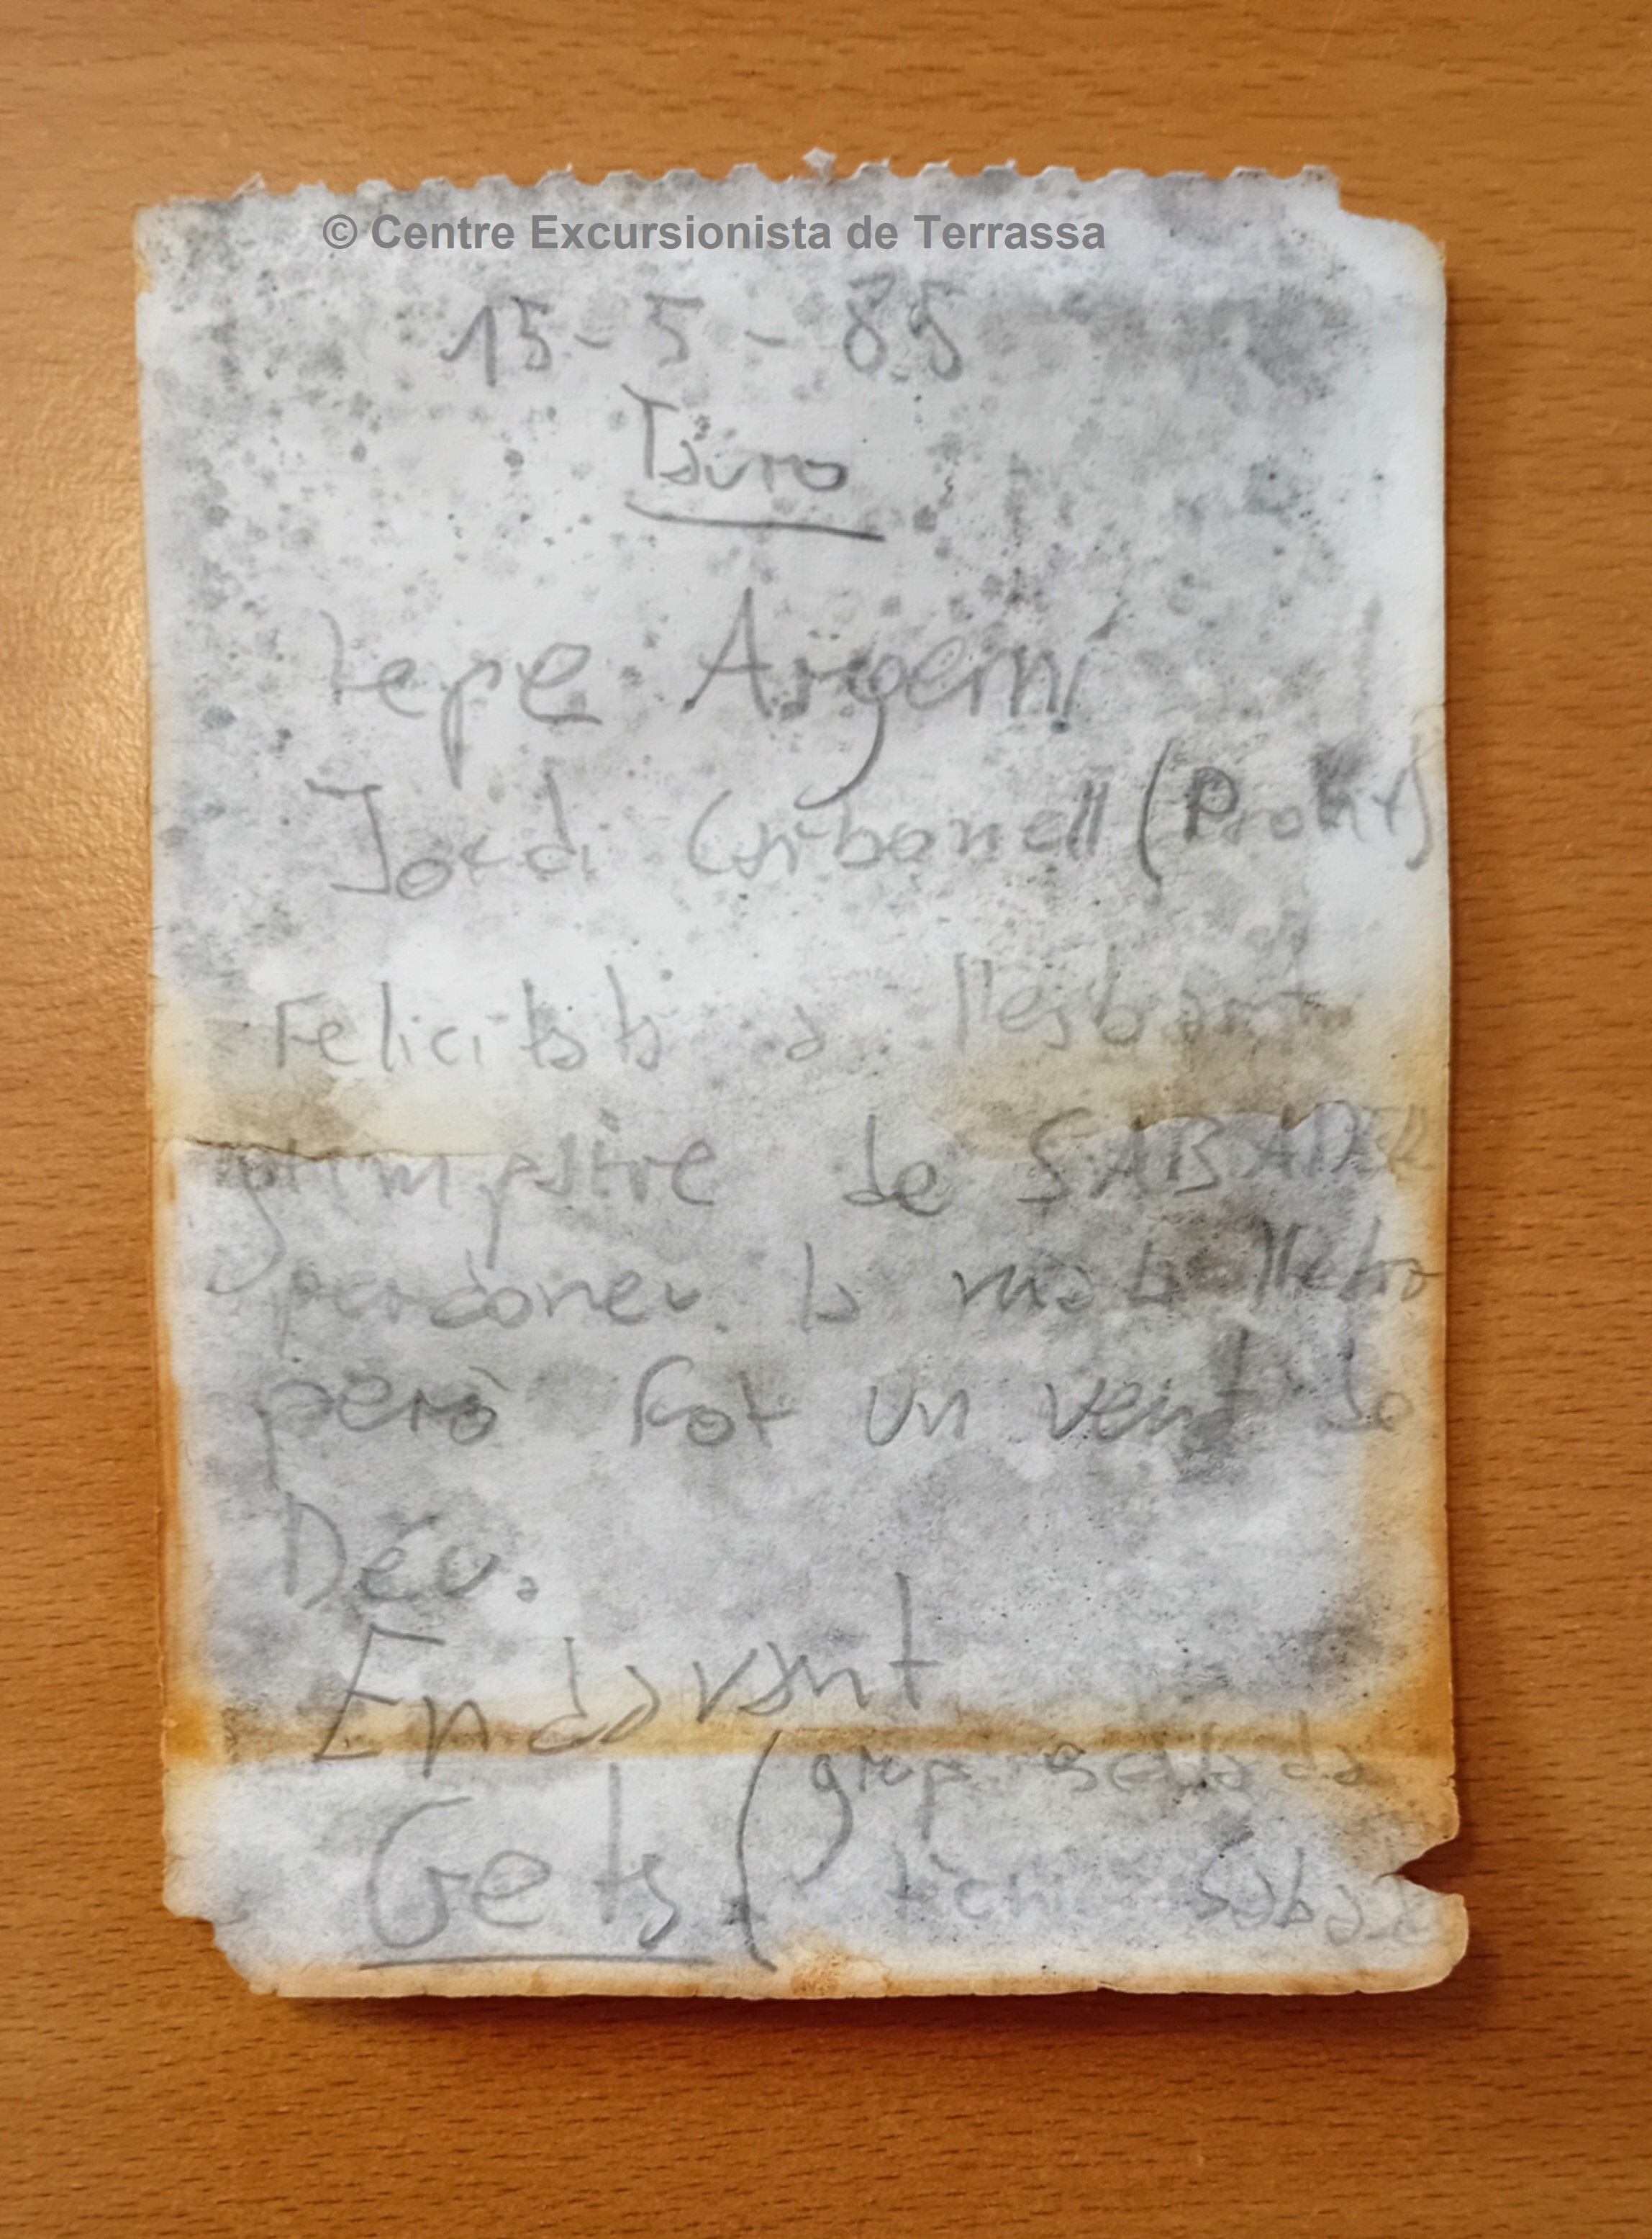 © Centre Excursionista de Terrassa
15-5-85
Tauro
Pepe Argemí
Jordi Carbonell (
Felicitats a l'lesbart
de SABADELL
perdoneu la mala lletra
però fot un vent de
Déu.
Endavant
Gets (grup escalada
tècnic Sabadell